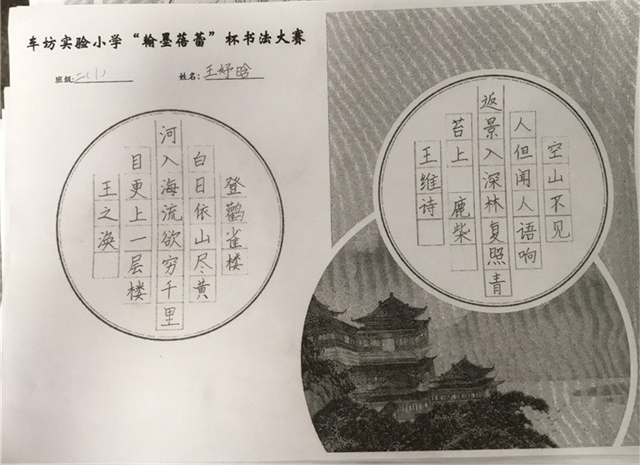 车坊实验小学“翰墨蓓蕾”杯书法大赛
班级:二(1) 姓名:王妤晗
登鹳雀楼
白日依山尽黄
河入海流欲穷千里
目更上一层楼
王之涣
空山不见
人但闻人语响
返景入深林复照青
苔上 鹿柴
王维诗